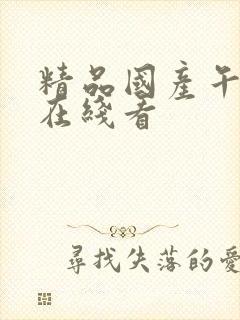 精品國產午
在綫看
尋找失落的愛